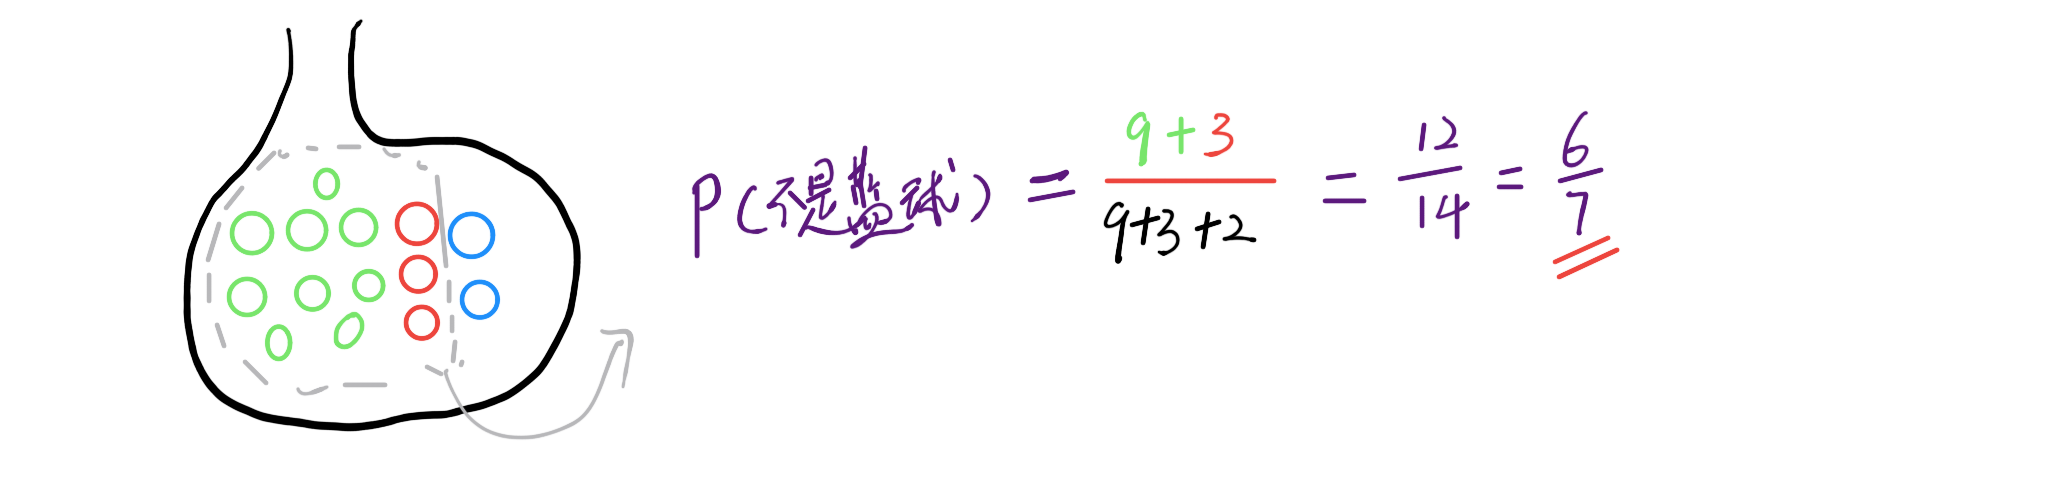 P(不是蓝球) = \frac{9+3}{9+3+2} = \frac{12}{14} = \frac{6}{7}